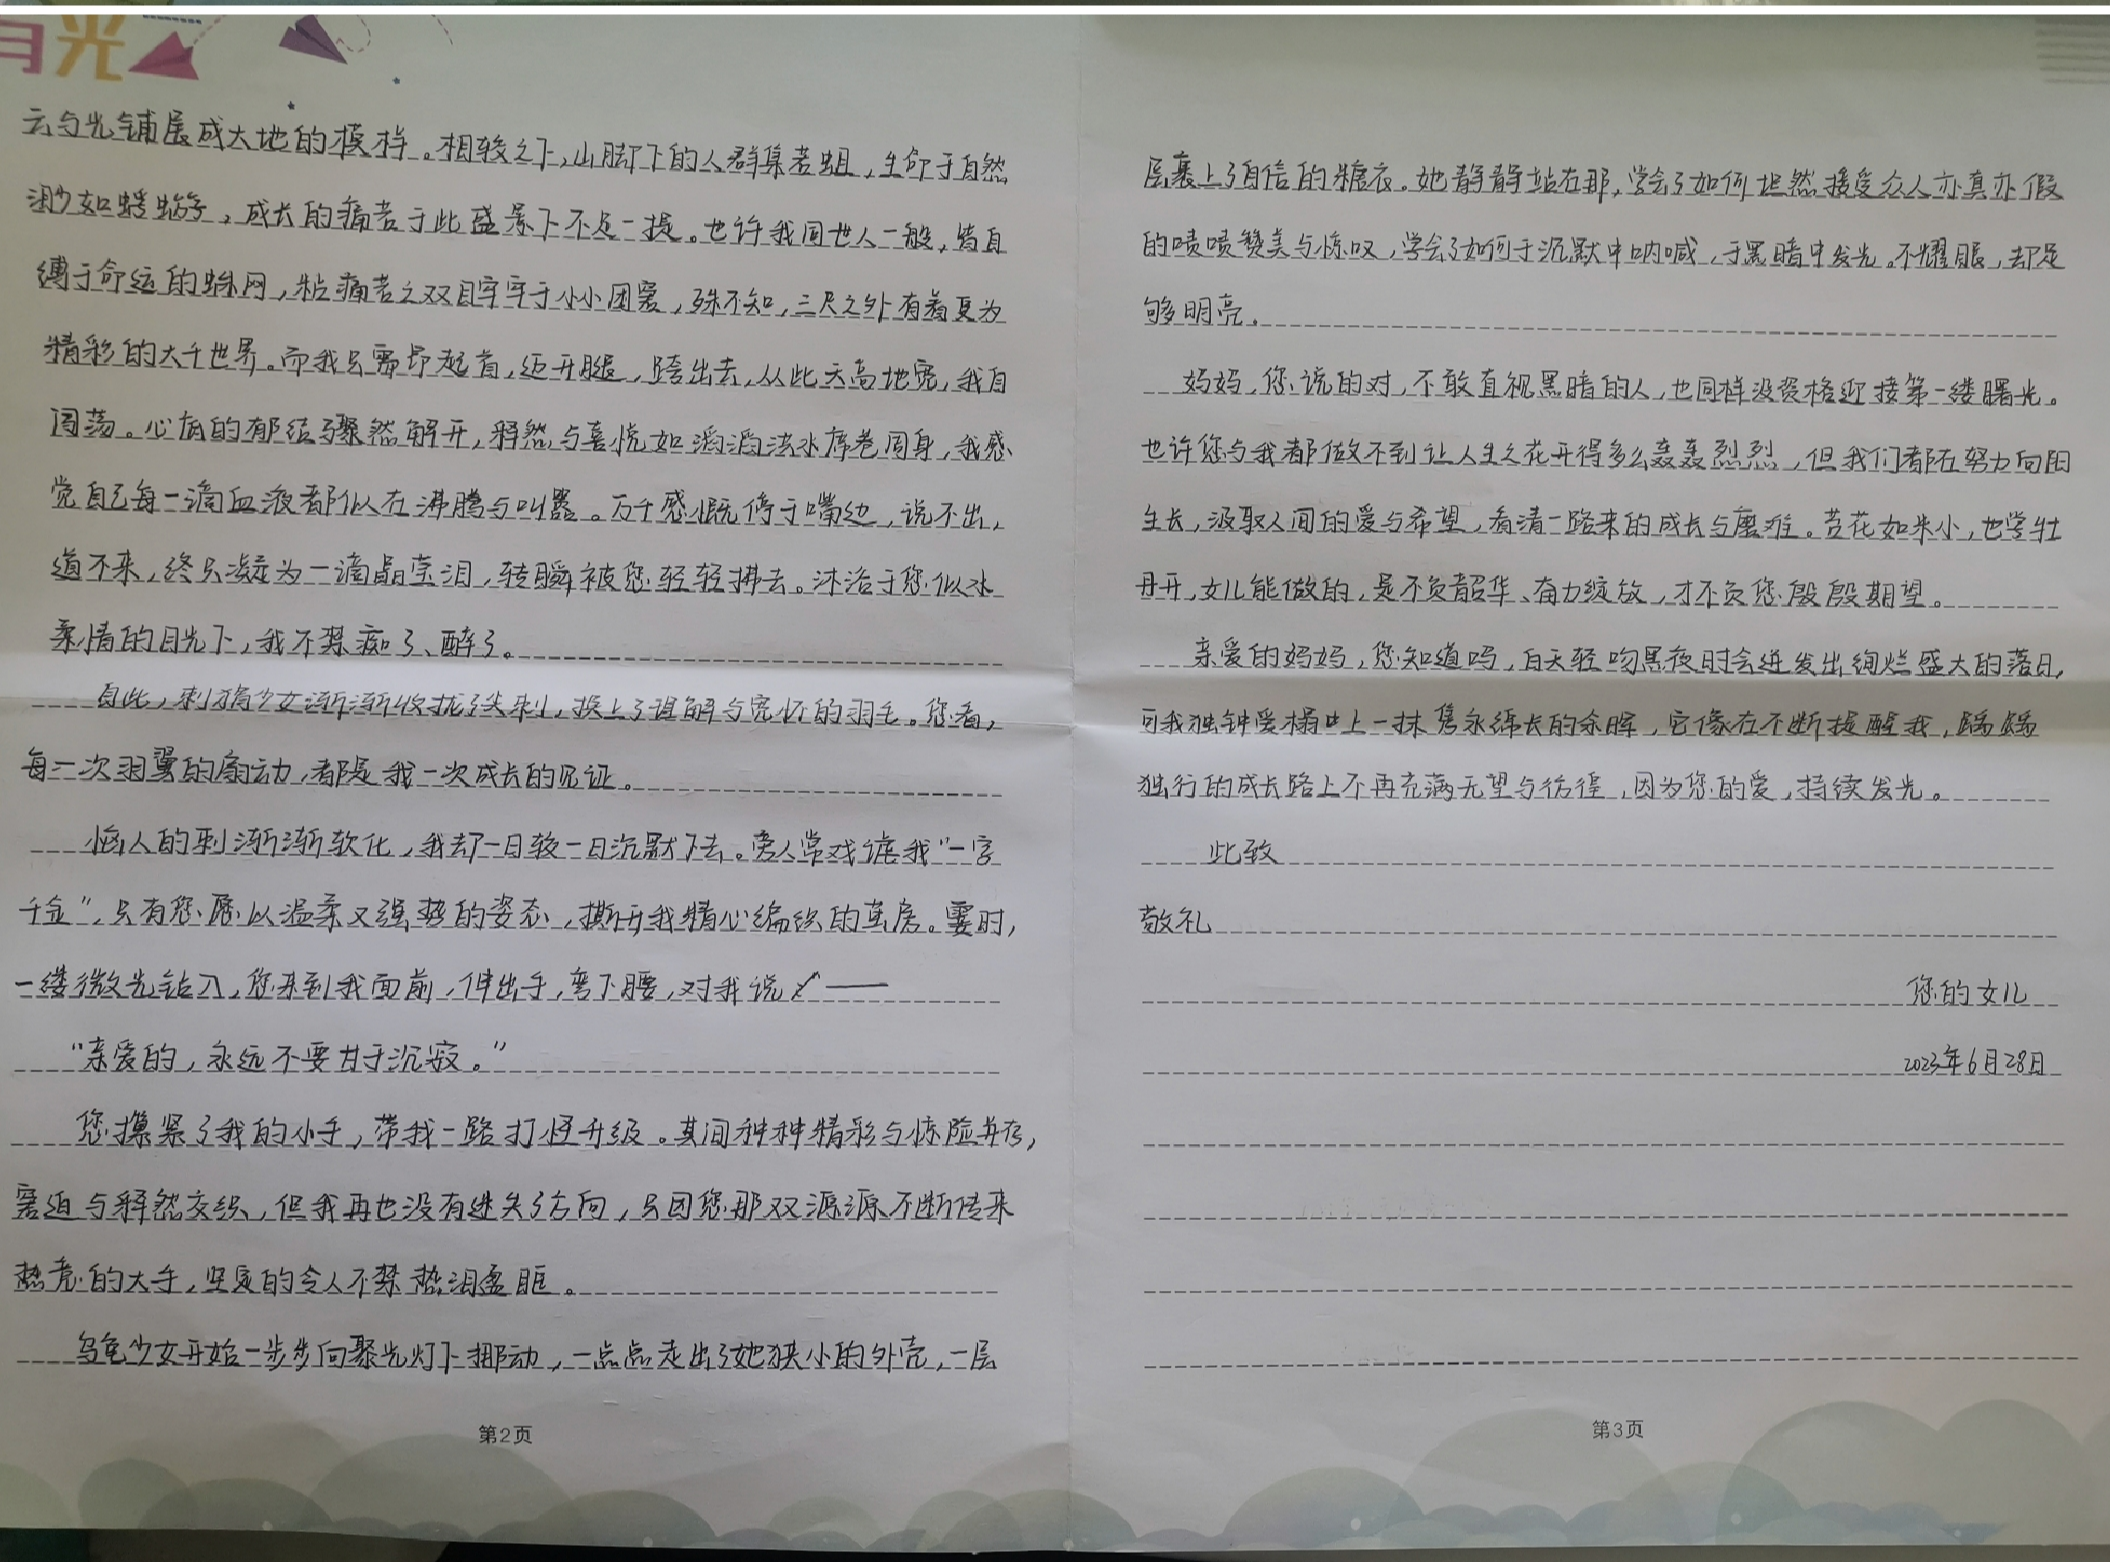 月光
云与光铺展成大地的模样。相较之下,山脚下的人群集若蛆,生命于自然
渺如蜉蝣,成长的痛苦于此盛景下不足一提。也许我同世人一般,皆自
缚于命运的蛛网,粘痛苦之双目牢牢于小小团窝,殊不知,三尺之外有着更为
精彩的大千世界。而我只需昂起首,迈开腿,跨出去,从此天高地宽,我自
周荡。心底的郁结骤然解开,释然与喜悦如滔滔洪水席卷周身,我感
觉自己每一滴血液都似在沸腾与叫嚣。万千感慨停于嘴边,说不出,
道不来,终只凝为一滴晶莹泪,转瞬被您轻轻拂去。沐浴于您似水
柔情的目光下,我不禁痴了、醉了。
自此,刺猬少女渐渐收拢了尖刺,换上了谅解与宽怀的羽毛。您看,
每一次羽翼的扇动,都是我一次成长的见证。
恼人的刺渐渐软化,我却一日较一日沉默下去。旁人常戏谑我“一字
千金”,只有您愿以温柔又强势的姿态,撕开我精心编织的茧房。霎时,
一缕微光钻入,您来到我面前,伸出手,弯下腰,对我说——
“亲爱的,永远不要甘于沉寂。”
您攥紧了我的小手,带我一路打怪升级。其间种种精彩与惊险并存,
窘迫与释然交织,但我再也没有迷失了方向,只因您那双源源不断传来
热意的大手,坚定的令人不禁热泪盈眶。
乌龟少女开始一步步向聚光灯下挪动,一点点走出了她狭小的外壳,一层
第2页
层裹上了自信的糖衣。她静静站在那,学会了如何坦然接受众人亦真亦假
的啧啧赞美与惊叹,学会了如何于沉默中呐喊,于黑暗中发光。不耀眼,却足
够明亮。
妈妈,您说的对,不敢直视黑暗的人,也同样没资格迎接第一缕曙光。
也许您与我都做不到让人生之花开得多么轰轰烈烈,但我们都在努力向阳
生长,汲取人间的爱与希望,看清一路来的成长与磨难。苔花如米小,也学牡
丹开,女儿能做的,是不负韶华、奋力绽放,才不负您殷殷期望。
亲爱的妈妈,您知道吗,白天轻吻黑夜时会迸发出绚烂盛大的落日,
可我独钟爱榻上一抹隽永绵长的余晖,它像在不断提醒我,踽踽
独行的成长路上不再充满无望与彷徨,因为您的爱,持续发光。
此致
敬礼
您的女儿
2023年6月28日
第3页